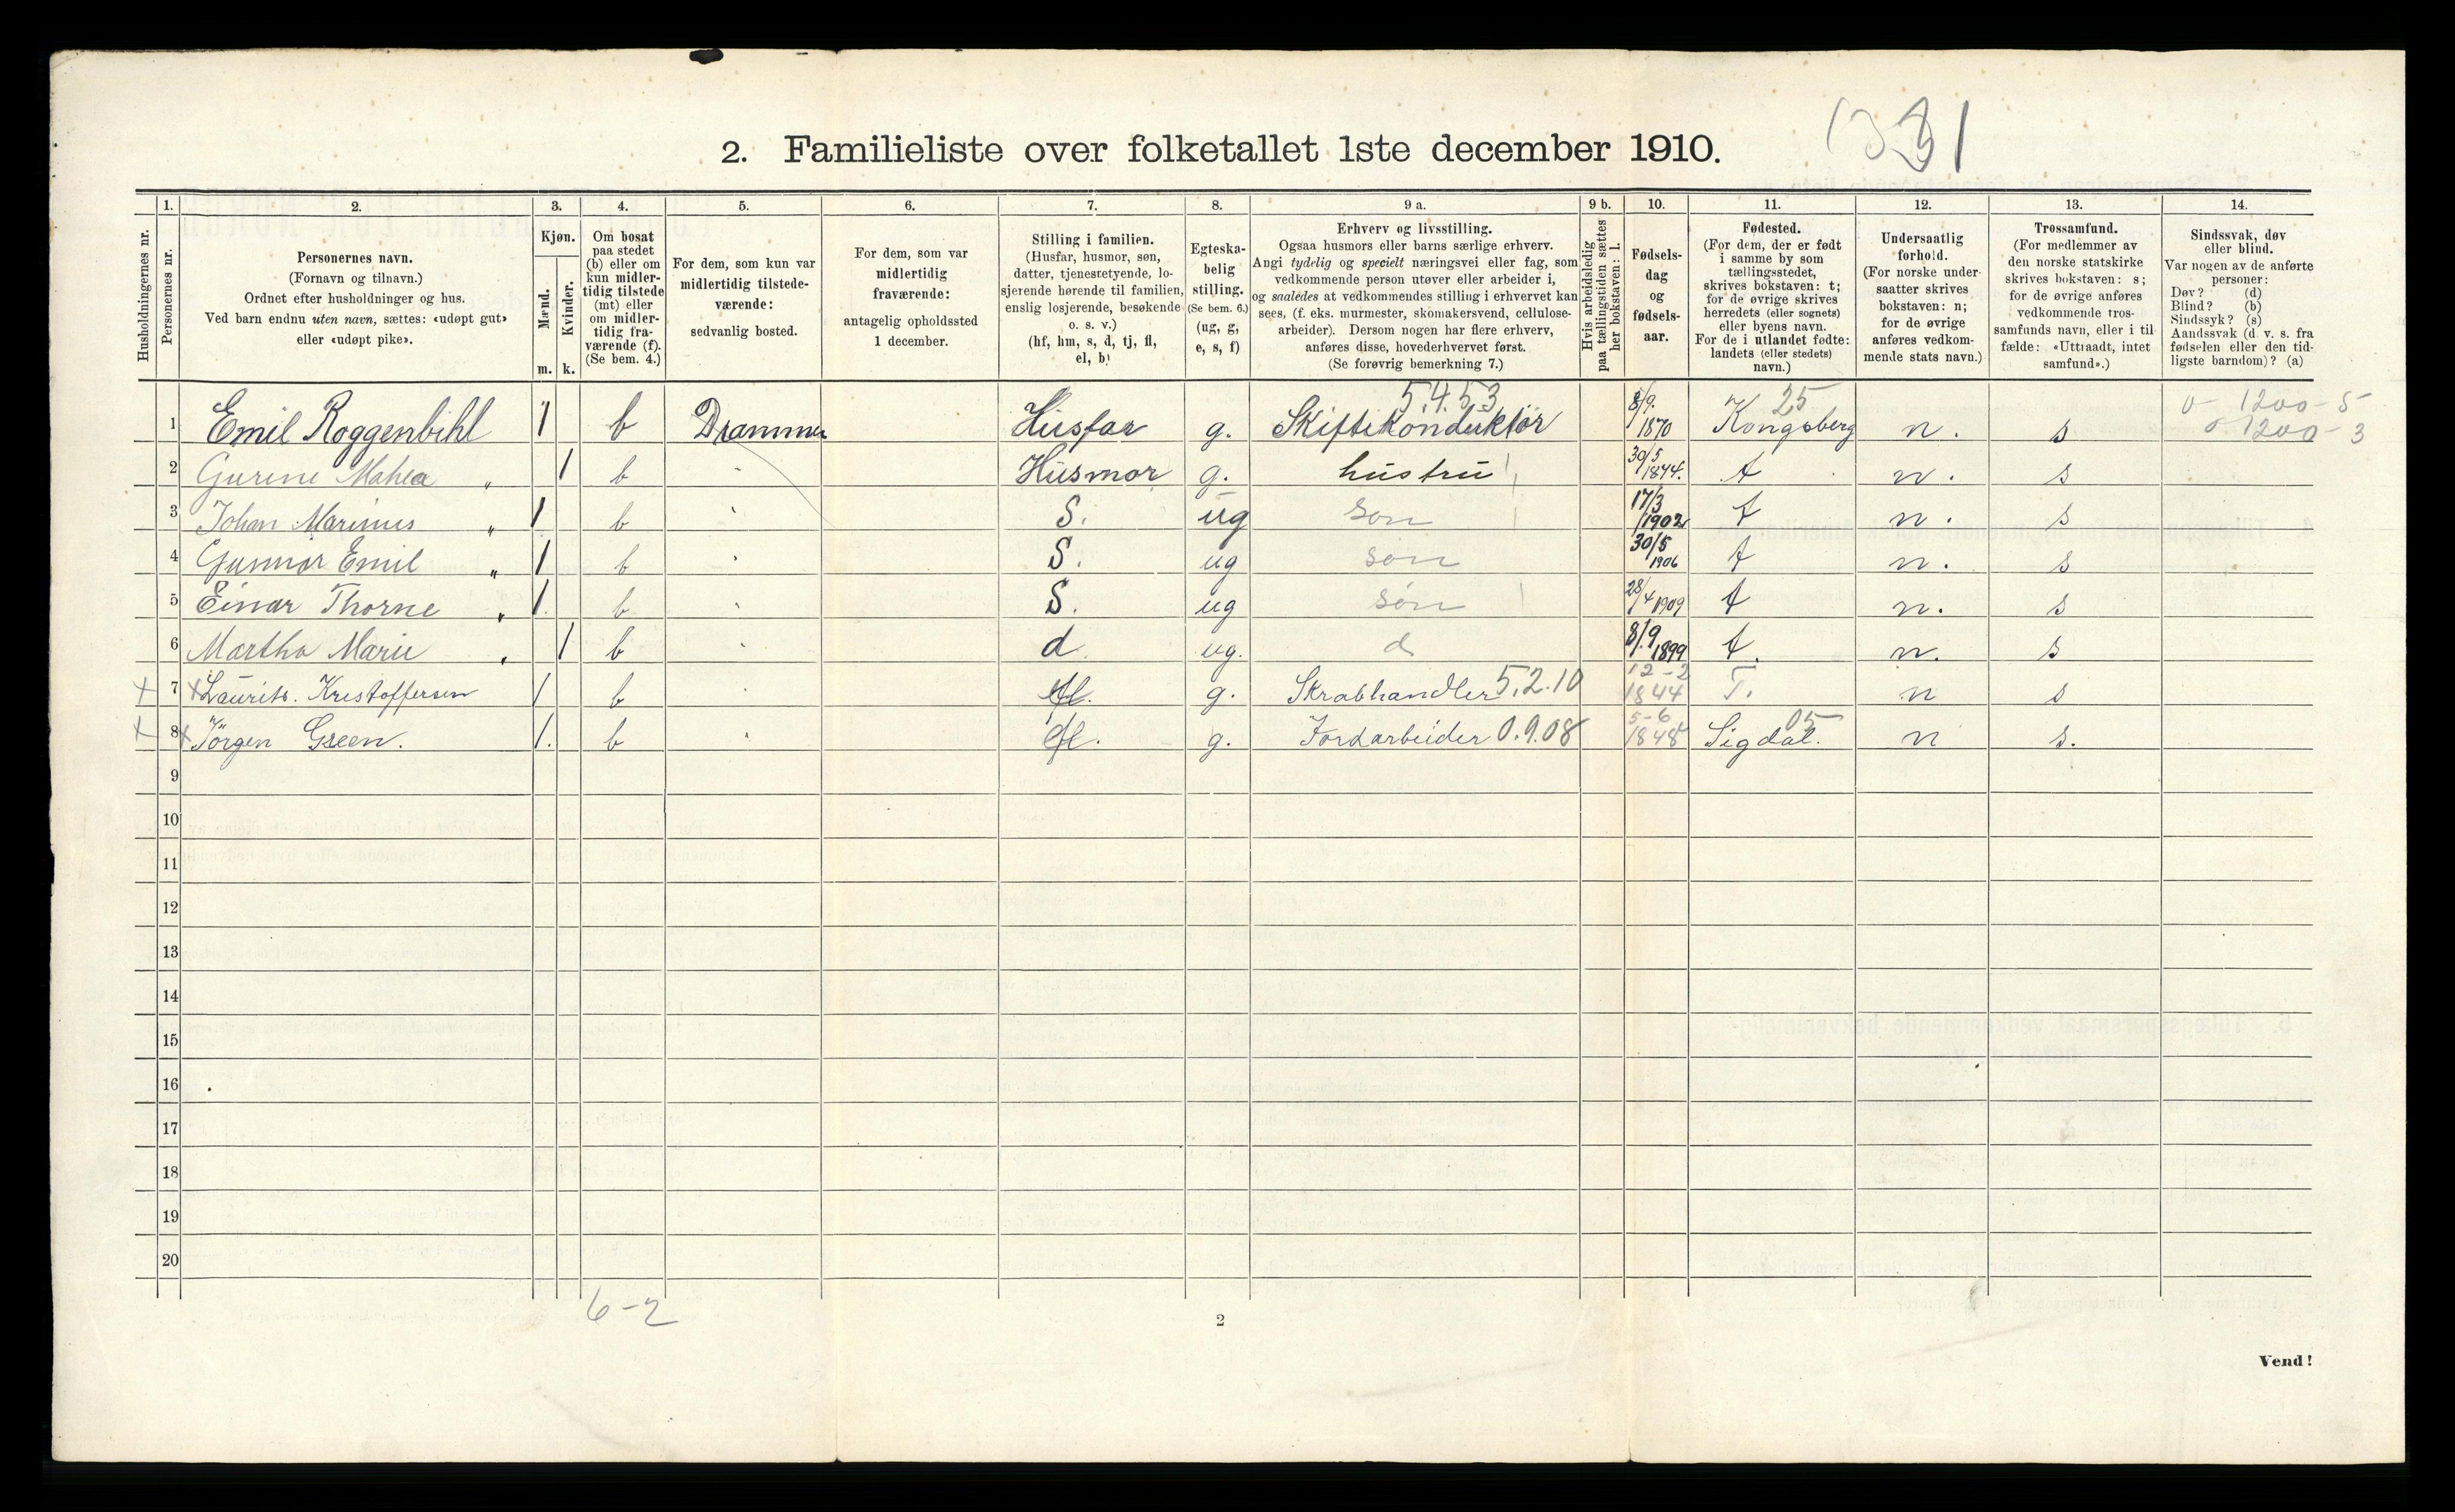 2. Familieliste over folketallet 1ste december 1910.
1.
2.
3.
4.
5.
6.
7.
8.
9 a.
9 b.
10.
11.
12.
13.
14.
Husholdningernes nr.
Personernes nr.
Personernes navn.
(Fornavn og tilnavn.)
Ordnet efter husholdninger og hus.
Ved barn endnu uten navn, sættes: «udøpt gut»
eller «udøpt pike».
Kjøn.
Mænd.
Kvinder.
m. k.
Om bosat
paa stedet
(b) eller om
kun midler-
tidig tilstede
(mt) eller
om midler-
tidig fra-
værende (f).
(Se bem. 4.)
For dem, som kun var
midlertidig tilstede-
værende:
sedvanlig bosted.
For dem, som var
midlertidig
fraværende:
antagelig opholdssted
1 december.
Stilling i familien.
(Husfar, husmor, søn,
datter, tjenestetyende, lo-
sjerende hørende til familien,
enslig losjerende, besøkende
o. s. v.)
(hf, hm, s, d, tj, fl,
el, b)
Egteska-
belig
stilling.
(Se bem. 6.)
(ug, g,
e, s, f)
Erhverv og livsstilling.
Ogsaa husmors eller barns særlige erhverv.
Angi tydelig og specielt næringsvei eller fag, som
vedkommende person utøver eller arbeider i,
og saaledes at vedkommendes stilling i erhvervet kan
sees, (f. eks. murmester, skomakersvend, cellulose-
arbeider). Dersom nogen har flere erhverv,
anføres disse, hovederhvervet først.
(Se forøvrig bemerkning 7.)
Hvis arbeidsledig
paa tællingstiden sættes
her bokstaven: l.
Fødsels-
dag
og
fødsels-
aar.
Fødested.
(For dem, der er født
i samme by som
tællingsstedet,
skrives bokstaven: t;
for de øvrige skrives
herredets (eller sognets)
eller byens navn.
For de i utlandet fødte:
landets (eller stedets)
navn.)
Undersaatlig
forhold.
(For norske under-
saatter skrives
bokstaven: n;
for de øvrige
anføres vedkom-
mende stats navn.)
Trossamfund.
(For medlemmer av
den norske statskirke
skrives bokstaven: s;
for de øvrige anføres
vedkommende tros-
samfunds navn, eller i til-
fælde: «Uttraadt, intet
samfund».)
Sindssvak, døv
eller blind.
Var nogen av de anførte
personer:
Døv? (d)
Blind? (b)
Sindssyk? (s)
Aandssvak (d. v. s. fra
fødselen eller den tid-
ligste barndom)? (a)
5.4.53 25 0 - 1200 - 5
1 Emil Roggenbihl 1 b Drammen Husfar g. Skiftekonduktør 8/9. 1870 Kongsberg n. s 0 1200 - 3
2 Gurine Mahlea „ 1 b Husmor g. hustru 30/5 1874. t n. s
3 Johan Marinus „ 1 b S. ug søn 17/3 1902 t n. s
4 Gunnar Emil „ 1 b S. ug søn 30/5 1906 t n. s
5 Einar Thorne „ 1. b S. ug søn 28/4 1909 t n. s
6 Martha Marie „ 1 b d ug. d 8/9 1899 t. n. s
7 Laurits. Kristoffersen 1 b fl. g. Skrabhandler 5.2.10 12-2 1844 T. n s
8 Jörgen Green. 1. b fl. g. Jordarbeider 0.9.08 5-6 1848 Sigdal. 05 n s.
9
10
11
12
13
14
15
16
17
18
19
20
6-2
2
Vend!